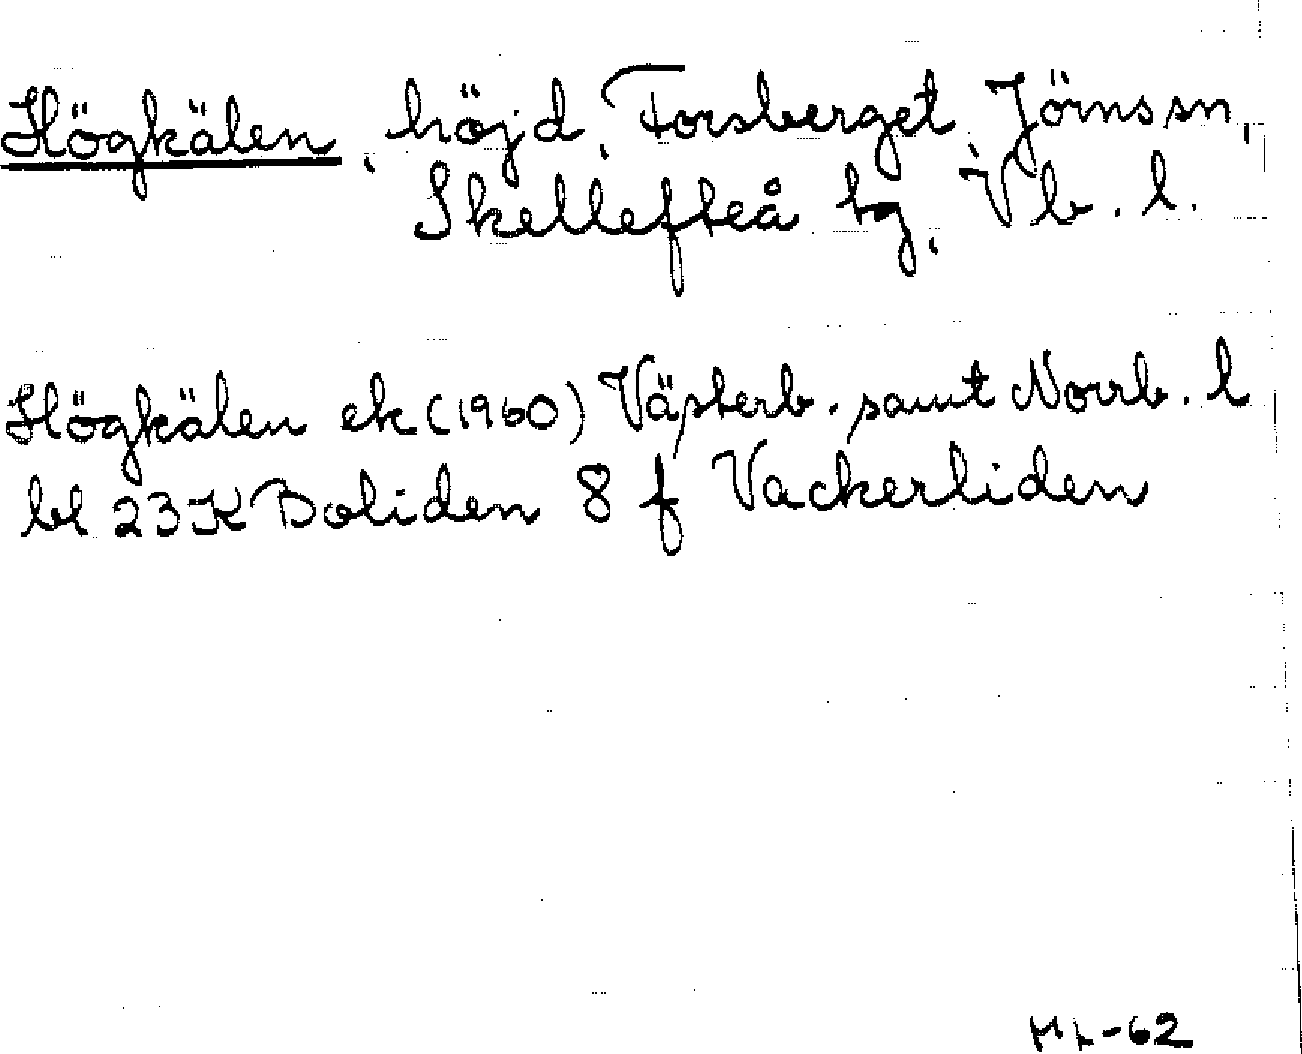 Högkälen, höjd, Forsberget, Jörns sn,
Skellefteå tg, Vb. l.
Högkälen ek (1960) Västerb. samt Norrb. l
bl 23 K Boliden 8 f Vackerliden
ML-62